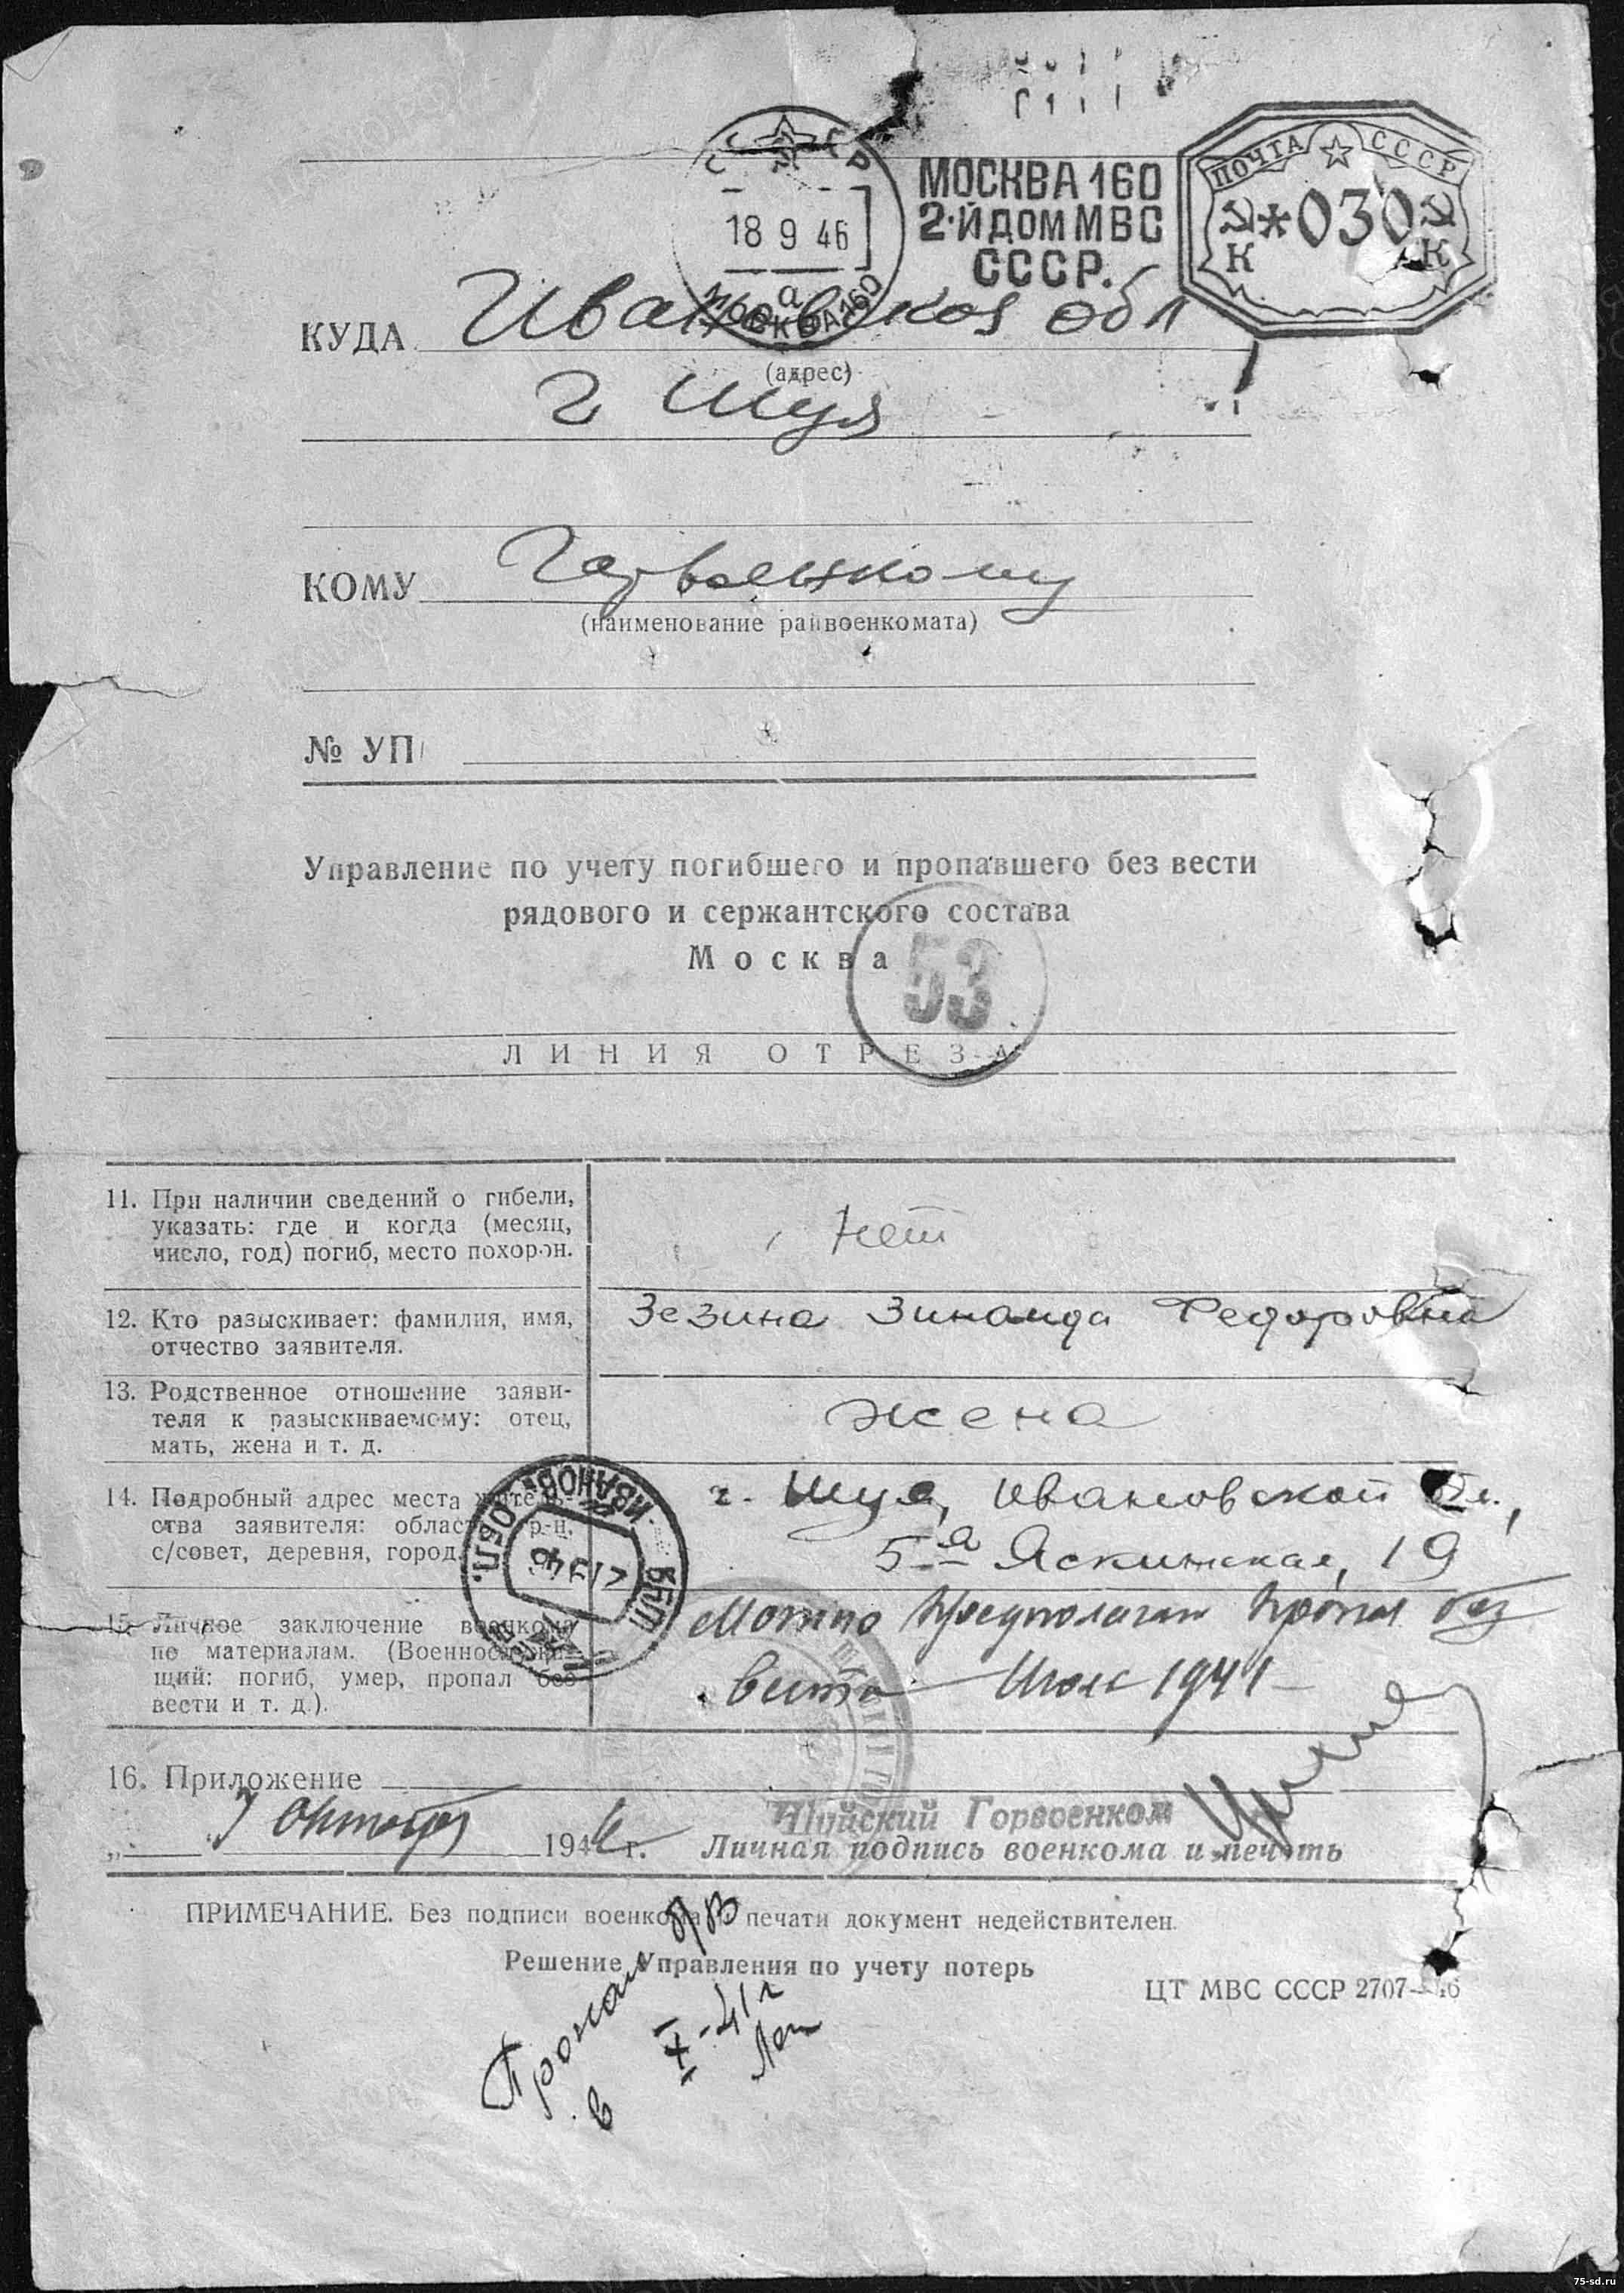 СССР
18 9 46
а
МОСКВА 160
МОСКВА 160
2-Й ДОМ МВС
СССР.
ПОЧТА СССР
*030
К К
КУДА Ивановская обл
(адрес)
г Шуя
КОМУ Горвоенкому
(наименование райвоенкомата)
№ УП
Управление по учету погибшего и пропавшего без вести
рядового и сержантского состава
Москва
53
ЛИНИЯ ОТРЕЗА
11. При наличии сведений о гибели,
указать: где и когда (месяц,
число, год) погиб, место похорон.
Нет
12. Кто разыскивает: фамилия, имя,
отчество заявителя.
Зезина Зинаида Федоровна
13. Родственное отношение заяви-
теля к разыскиваемому: отец,
мать, жена и т. д.
жена
14. Подробный адрес места житель-
ства заявителя: область, р-н,
с/совет, деревня, город.
г. Шуя, Ивановской обл.,
5-я Яскинская, 19
ИВАНОВ. ОБЛ.
15. Личное заключение военкома
по материалам. (Военнослужа-
щий: погиб, умер, пропал без
вести и т. д.).
Можно предполагат пропал без
вести Июль 1941
16. Приложение
7 Октября 1946 г.
Шуйский Горвоенком
Личная подпись военкома и печать
ПРИМЕЧАНИЕ. Без подписи военкома и печати документ недействителен.
Решение Управления по учету потерь
ЦТ МВС СССР 2707—46
Пропал б/в
в X-41 г
75-sd.ru